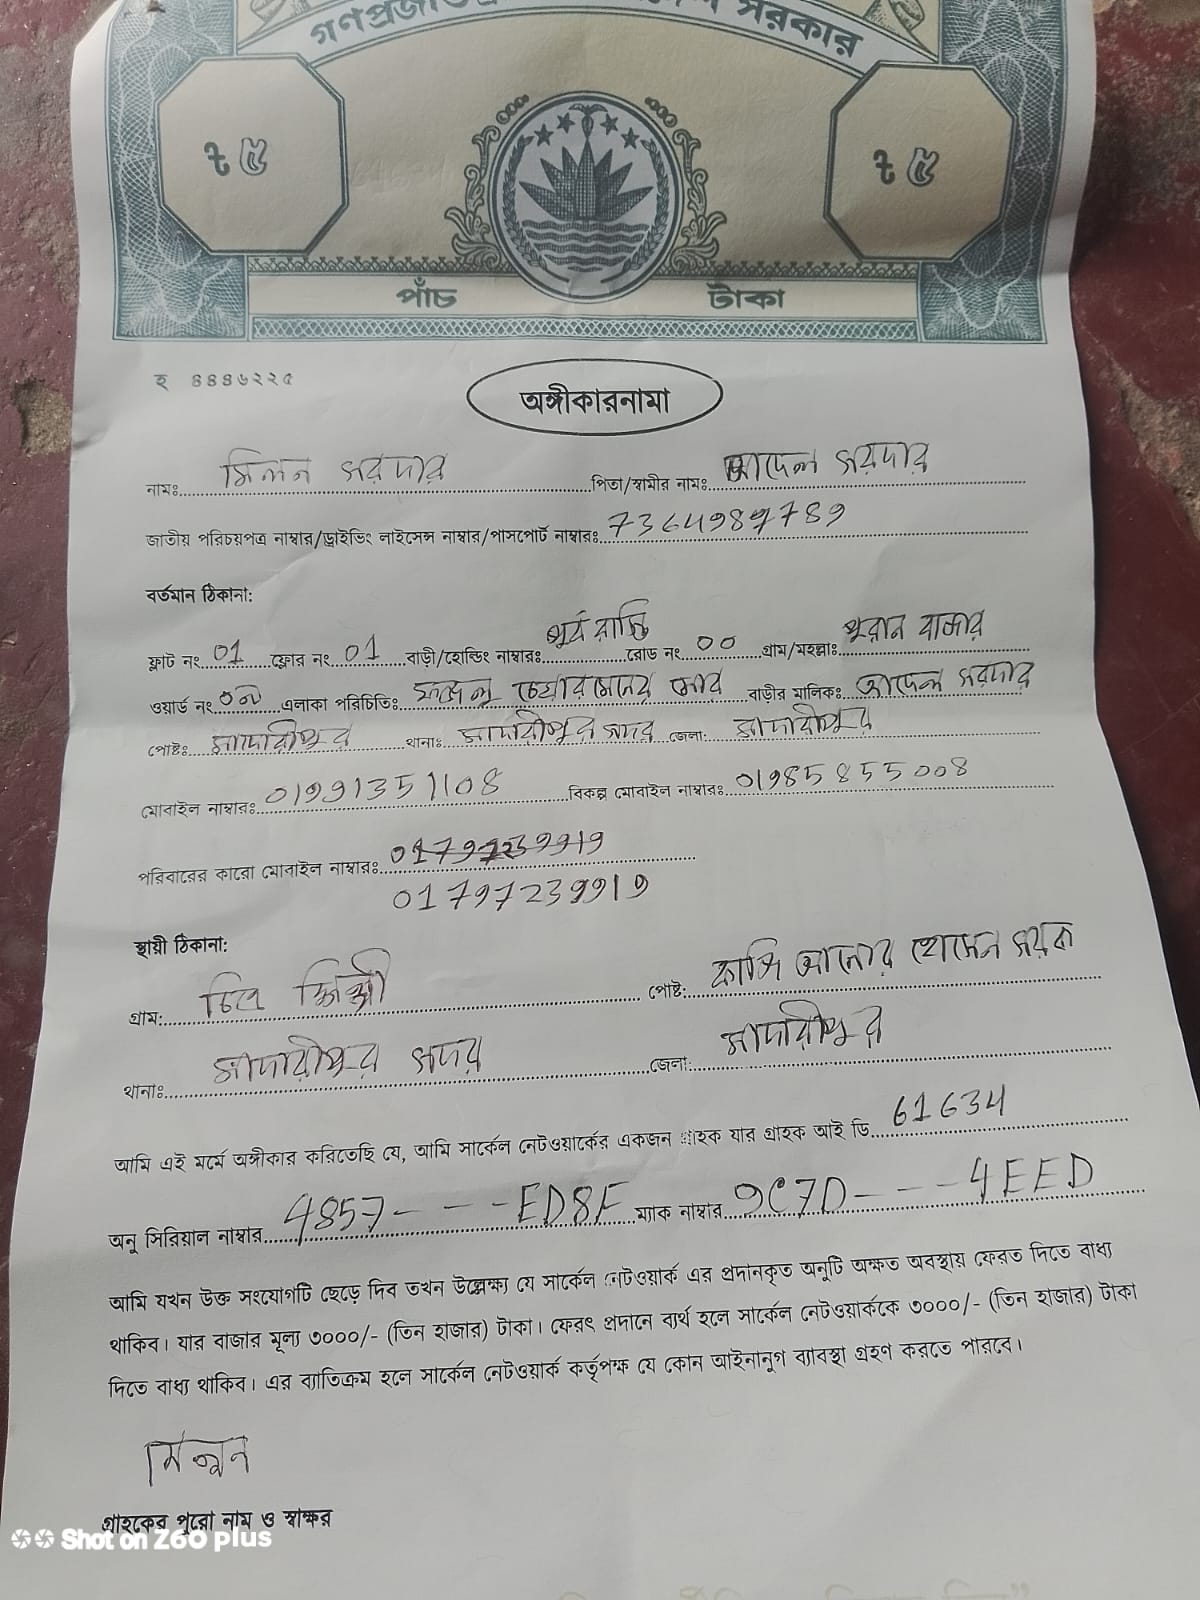 সরকার
৳ ৫
৳ ৫
পাঁচ টাকা
হ ৪৪৪৬২২৫
অঙ্গীকারনামা
নামঃ মিলন সরদার পিতা/স্বামীর নামঃ আদেল সরদার
জাতীয় পরিচয়পত্র নাম্বার/ড্রাইভিং লাইসেন্স নাম্বার/পাসপোর্ট নাম্বারঃ
বর্তমান ঠিকানা:
ফ্লাট নং 01 ফ্লোর নং 01 বাড়ী/হোল্ডিং নাম্বারঃ রোড নং 00 গ্রাম/মহল্লাঃ পুরান বাজার
ওয়ার্ড নং এলাকা পরিচিতিঃ বাড়ীর মালিকঃ আদেল সরদার
পোষ্টঃ মাদারীপুর থানাঃ মাদারীপুর সদর জেলা: মাদারীপুর
মোবাইল নাম্বারঃ 01991351108 বিকল্প মোবাইল নাম্বারঃ 01985855008
পরিবারের কারো মোবাইল নাম্বারঃ
01797239919
স্থায়ী ঠিকানা:
গ্রাম: পোষ্ট:
থানাঃ মাদারীপুর সদর জেলা: মাদারীপুর
আমি এই মর্মে অঙ্গীকার করিতেছি যে, আমি সার্কেল নেটওয়ার্কের একজন গ্রাহক যার গ্রাহক আই ডি 61634
অনু সিরিয়াল নাম্বার 4857- - -ED8F ম্যাক নাম্বার 9C7D- - -4EED
আমি যখন উক্ত সংযোগটি ছেড়ে দিব তখন উল্লেক্ষ্য যে সার্কেল নেটওয়ার্ক এর প্রদানকৃত অনুটি অক্ষত অবস্থায় ফেরত দিতে বাধ্য
থাকিব। যার বাজার মূল্য ৩০০০/- (তিন হাজার) টাকা। ফেরৎ প্রদানে ব্যর্থ হলে সার্কেল নেটওয়ার্ককে ৩০০০/- (তিন হাজার) টাকা
দিতে বাধ্য থাকিব। এর ব্যাতিক্রম হলে সার্কেল নেটওয়ার্ক কর্তৃপক্ষ যে কোন আইনানুগ ব্যাবস্থা গ্রহণ করতে পারবে।
গ্রাহকের পুরো নাম ও স্বাক্ষর
Shot on Z60 plus